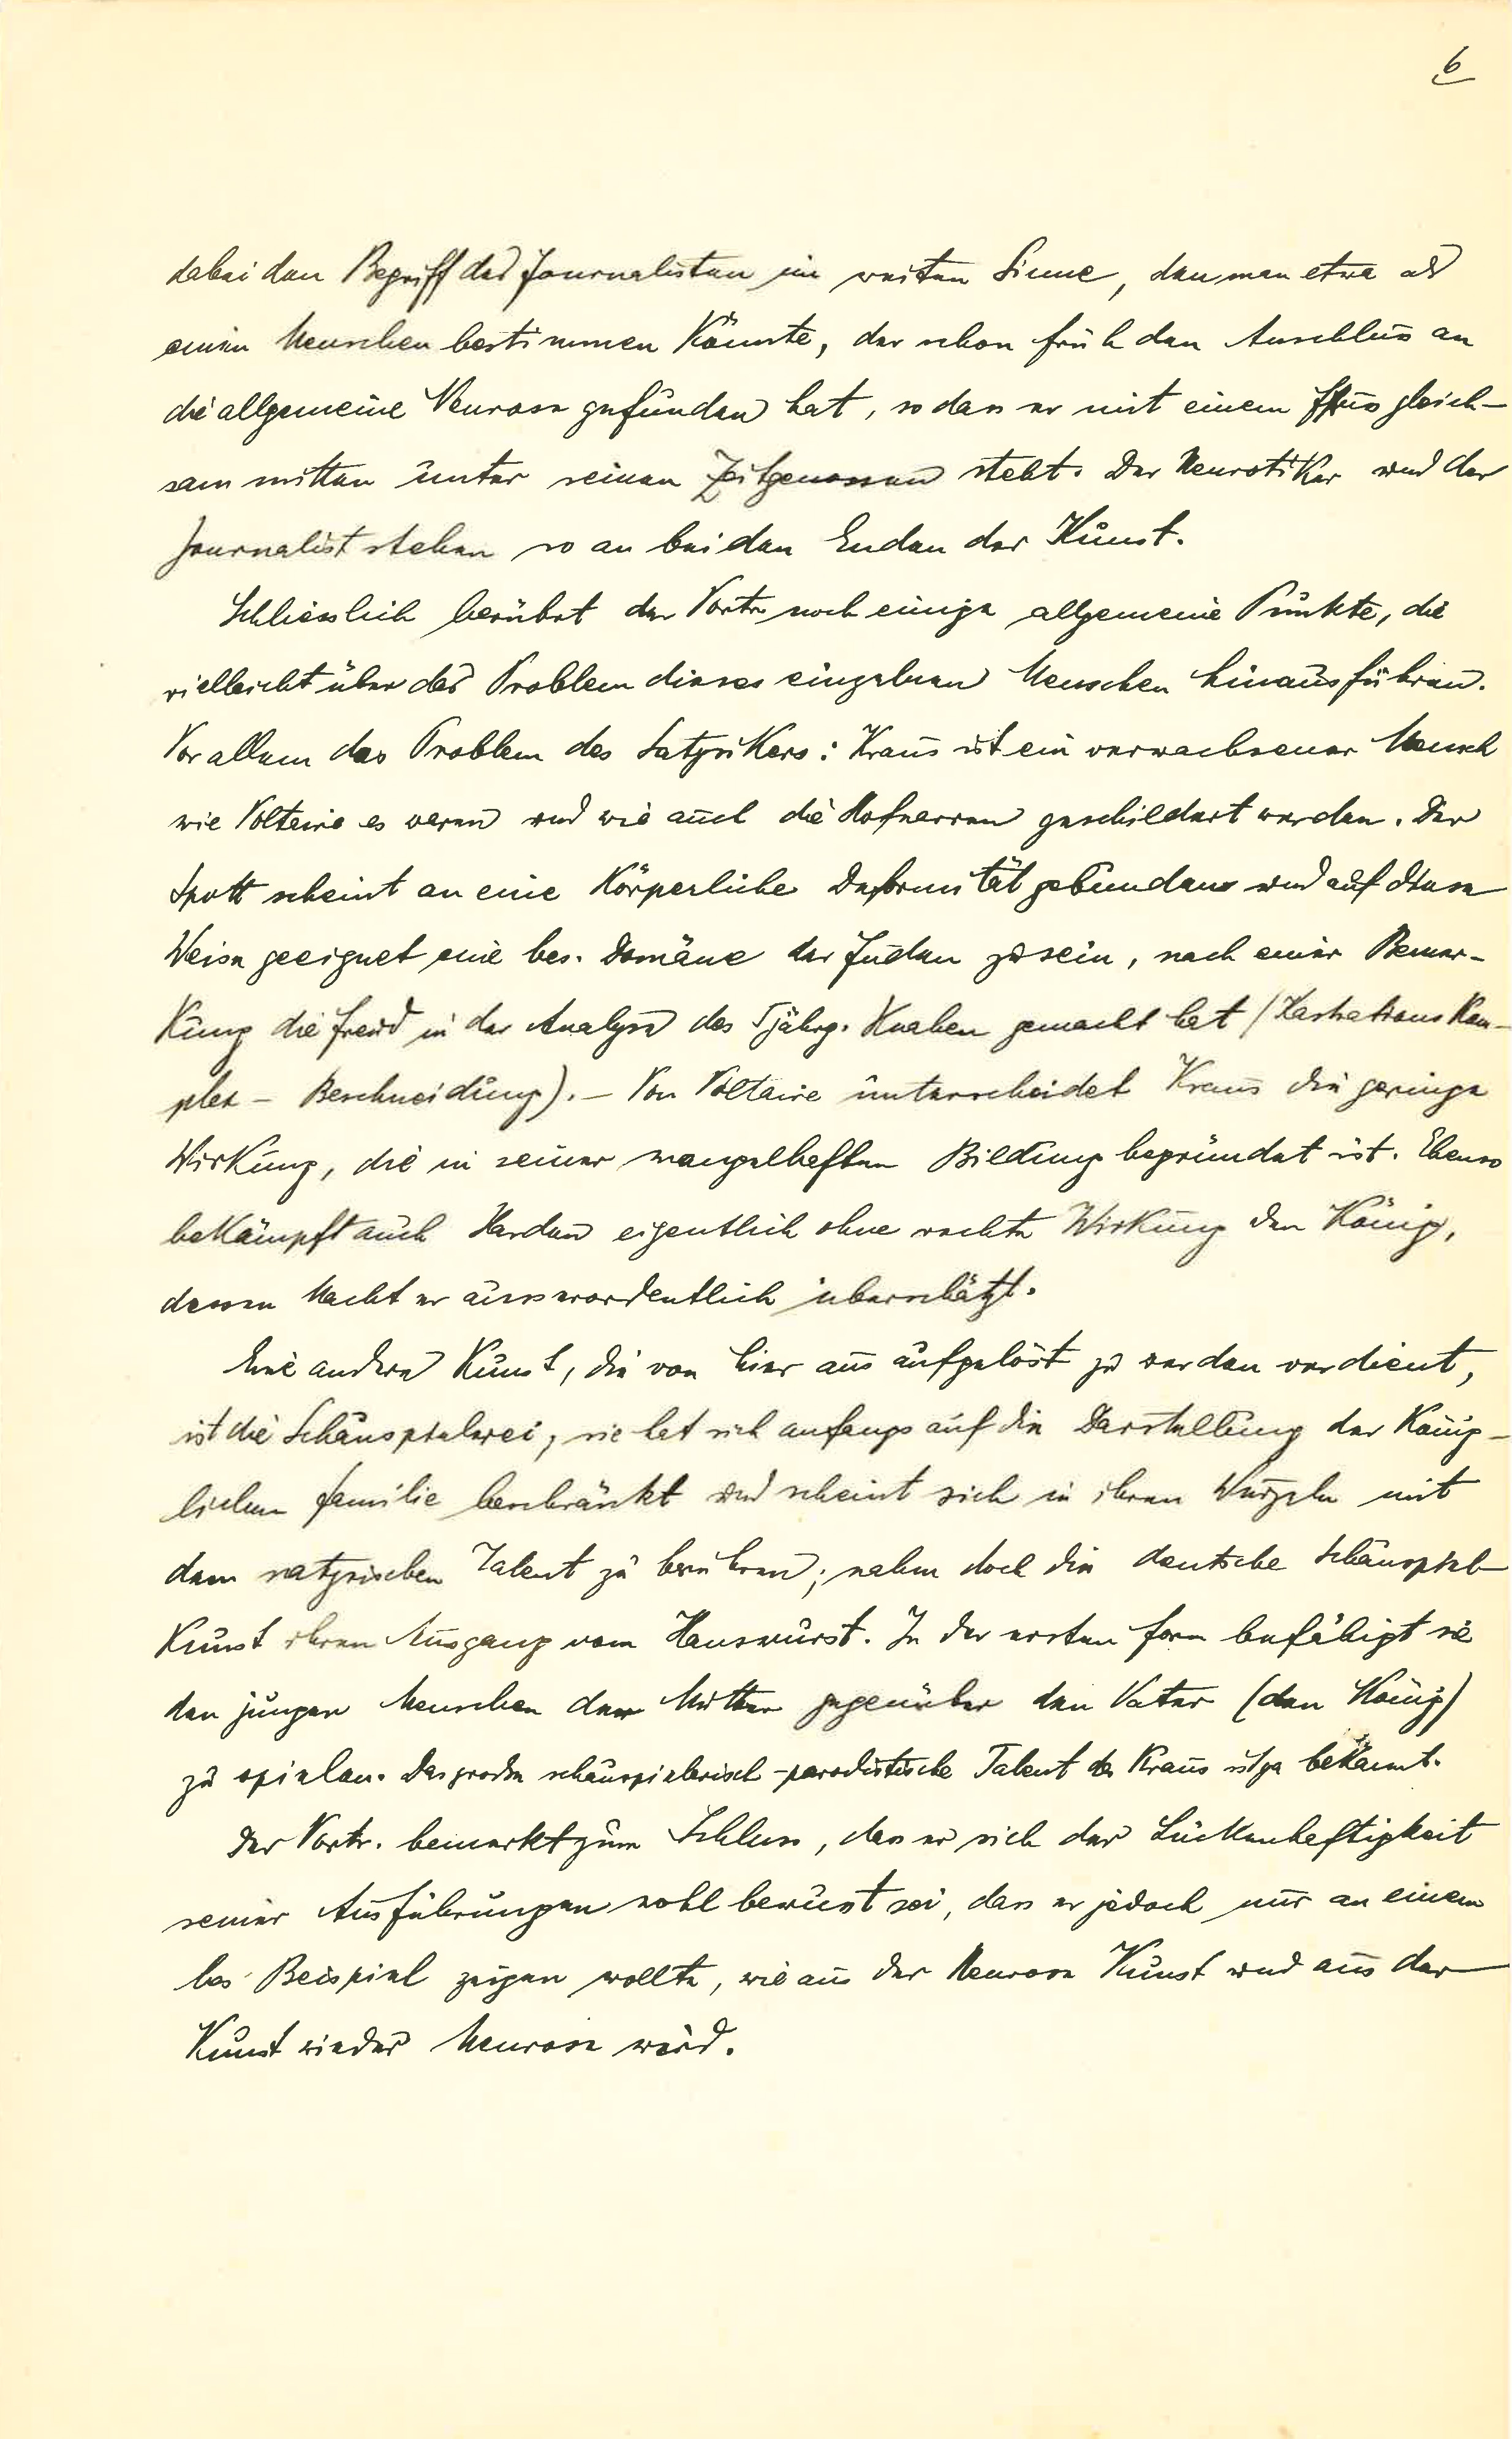 6
dabei den Begriff des Journalisten im weiten Sinne, den man etwa als
einen Menschen bestimmen könnte, der schon früh den Anschluss an
die allgemeine Neurose gefunden hat, so dass er mit einem Fuss gleich-
sam mitten unter seinen Zeitgenossen steht. Der Neurotiker und der
Journalist stehen so an beiden Enden der Kunst.
Schliesslich berührt der Vortr. noch einige allgemeine Punkte, die
vielleicht über das Problem dieses einzelnen Menschen hinausführen.
Vor allem das Problem des Satyrikers: Kraus ist ein verwachsener Mensch
wie Voltaire es waren und wie auch die Hofnarren geschildert werden. Der
Spott scheint an eine körperliche Deformität gebunden und auf diese
Weise geeignet eine bes. Domäne der Juden zu sein, nach einer Bemer-
kung die Freud in der Analyse des 5jährg. Knaben gemacht hat (Kastrationskom-
plex - Beschneidung). - Von Voltaire unterscheidet Kraus die geringe
Wirkung, die in seiner mangelhaften Bildung begründet ist. Ebenso
bekämpft auch Harden eigentlich ohne rechte Wirkung den König,
dessen Macht er ausserordentlich überschätzt.
Eine andere Kunst, die von hier aus aufgelöst zu werden verdient,
ist die Schauspielerei; sie hat sich anfangs auf die Darstellung der König-
lichen Familie beschränkt und scheint sich in ihren Wurzeln mit
dem satyrischen Talent zu berühren; nahm doch die deutsche Schauspiel-
kunst ihren Ausgang vom Hanswurst. In der ersten Form befähigt sie
den jungen Menschen der Mutter gegenüber den Vater (den König)
zu spielen. Das grosse schauspielerisch-parodistische Talent des Kraus ist ja bekannt.
Der Vortr. bemerkt zum Schluss, dass er sich der Lückenhaftigkeit
seiner Ausführungen wohl bewusst sei, dass er jedoch nur an einem
bes. Beispiel zeigen wollte, wie aus der Neurose Kunst und aus der
Kunst wieder Neurose wird.